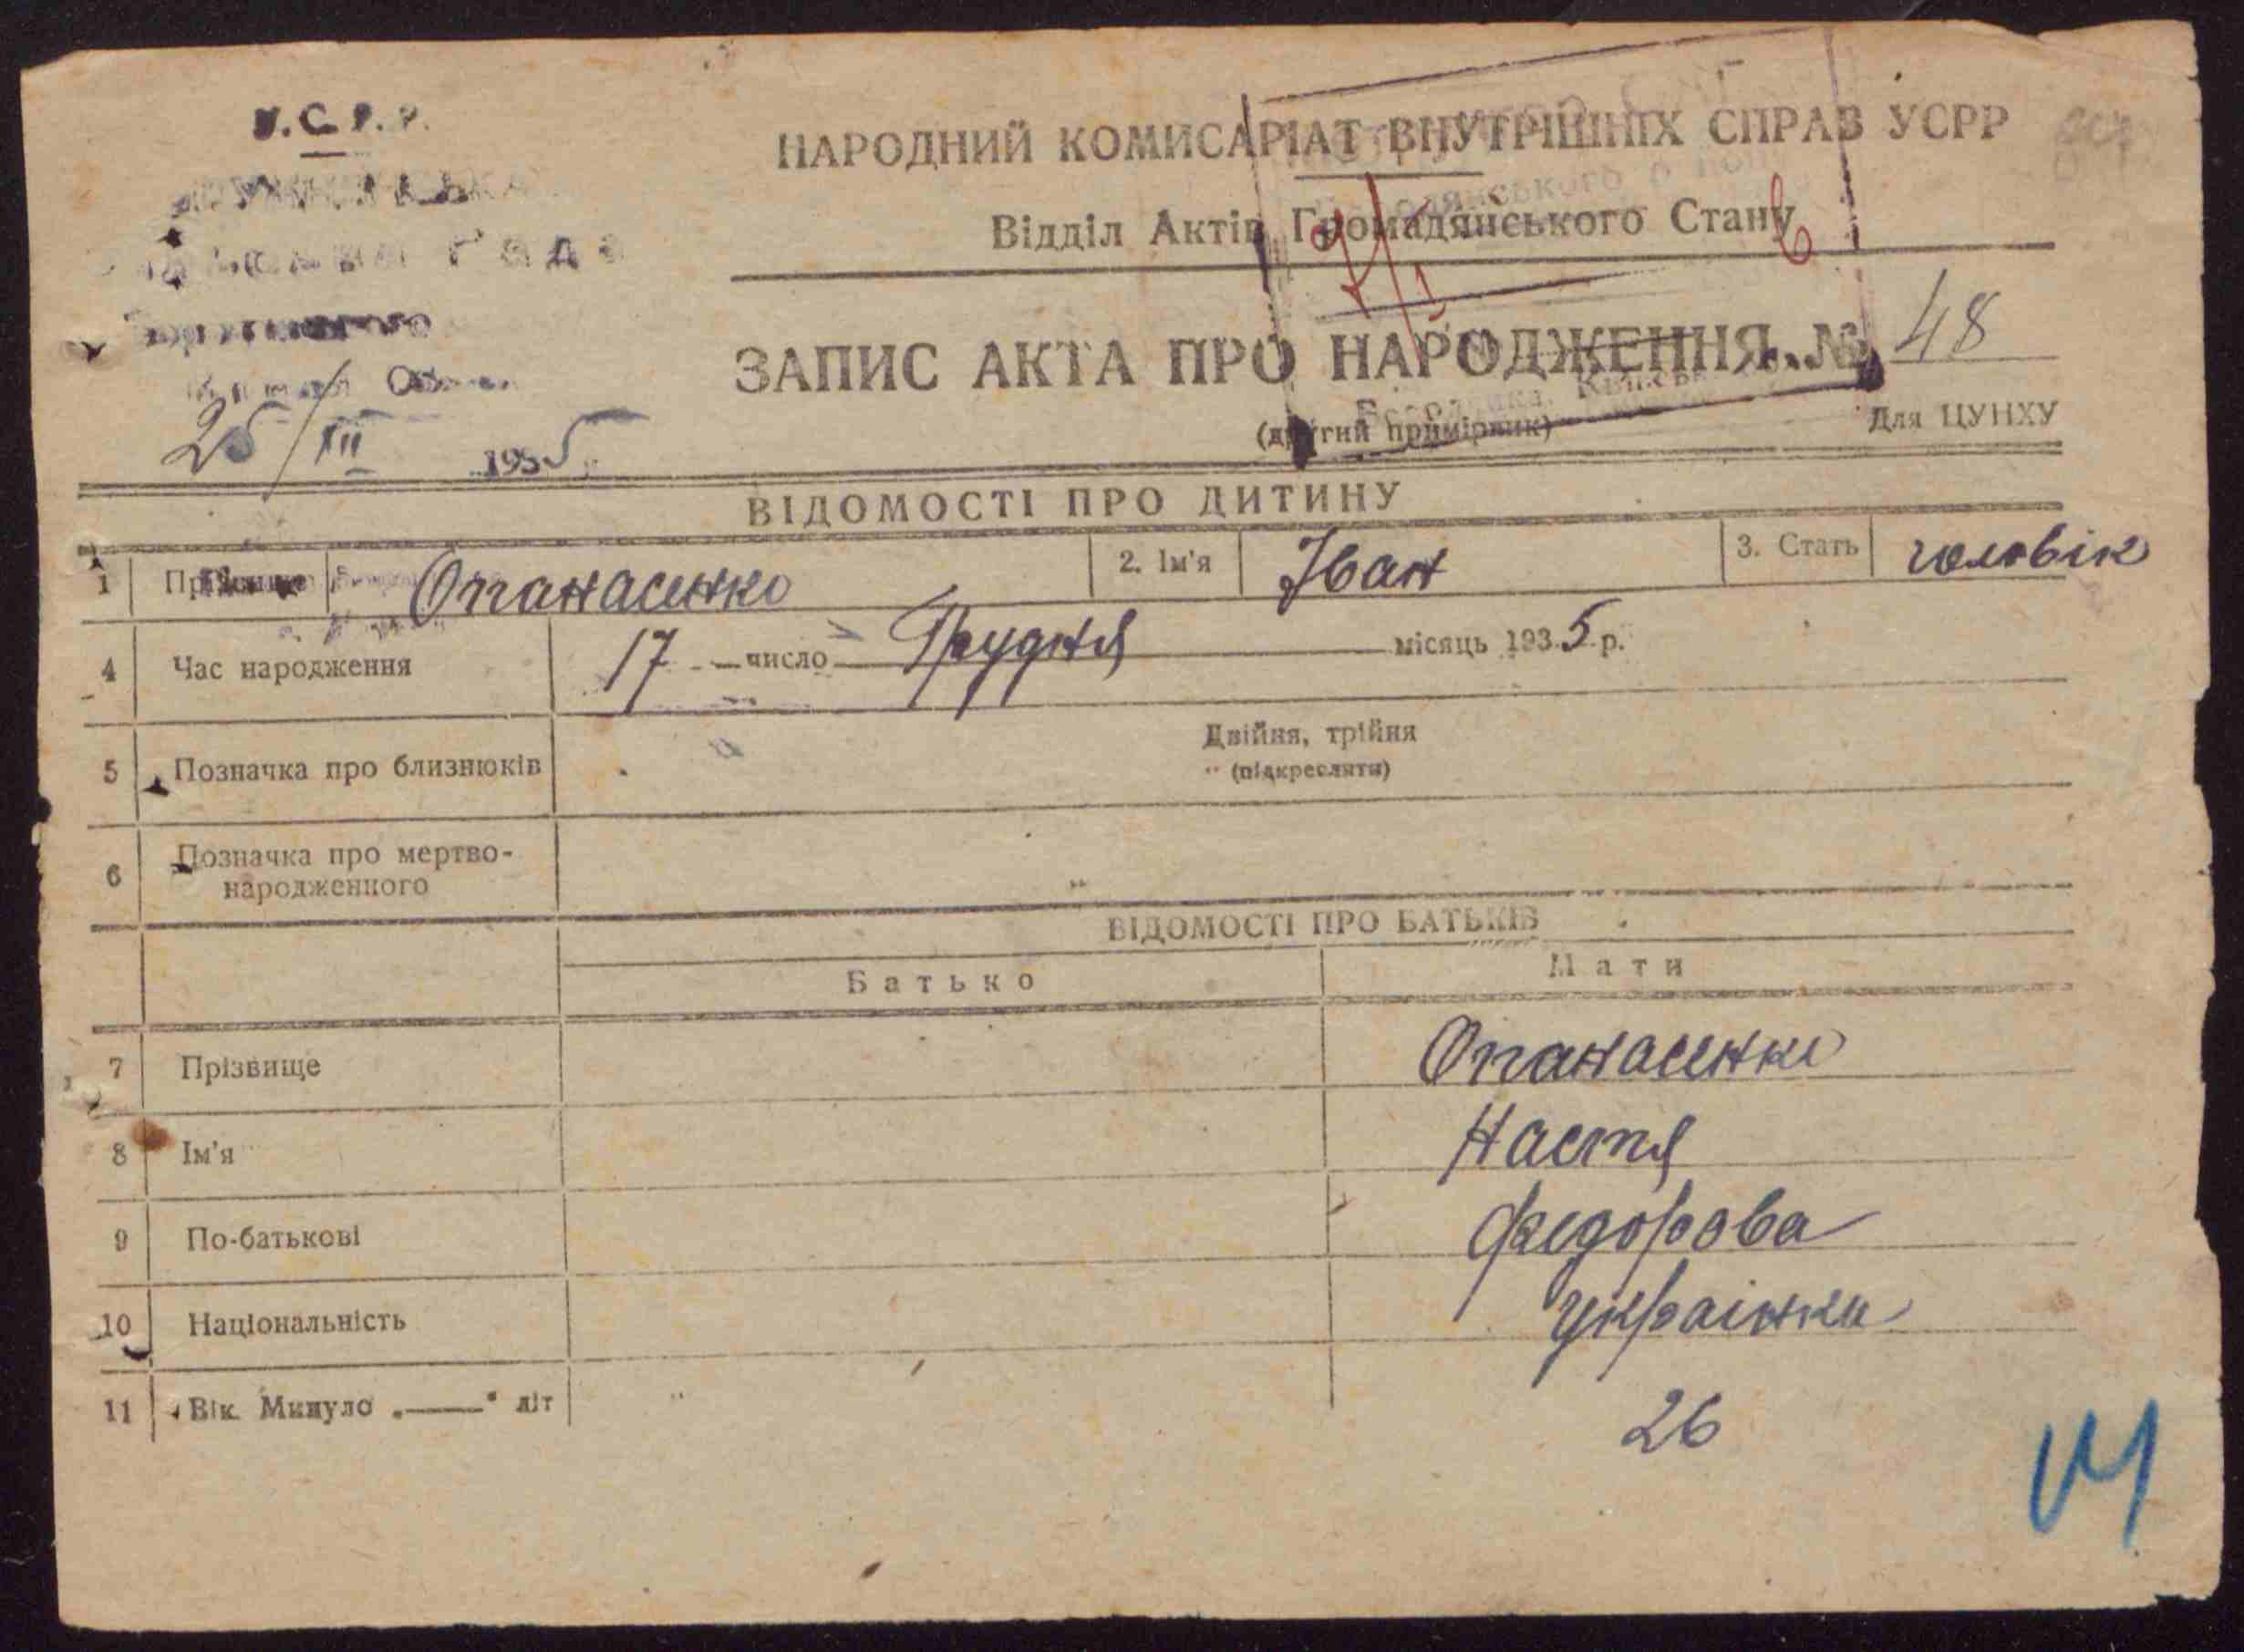 У.С.Р.Р.
НАРОДНИЙ КОМИСАРІАТ ВНУТРІШНІХ СПРАВ УСРР
Відділ Актів Громадянського Стану
ЗАПИС АКТА ПРО НАРОДЖЕННЯ № 48
(другий примірник)
Для ЦУНХУ
25/XII 1935
ВІДОМОСТІ ПРО ДИТИНУ
1 Прізвище Опанасенко 2. Ім'я Іван 3. Стать чоловік
4 Час народження 17 число Грудня місяць 1935 р.
5 Позначка про близнюків Двійня, трійня
(підкреслити)
6 Позначка про мертво-
народженного
ВІДОМОСТІ ПРО БАТЬКІВ
Батько Мати
7 Прізвище Опанасенко
8 Ім'я Настя
9 По-батькові Федорова
10 Національність українка
11 Вік. Минуло „——“ літ 26